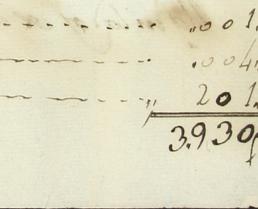 "001.
.004.
" 201.
3.930